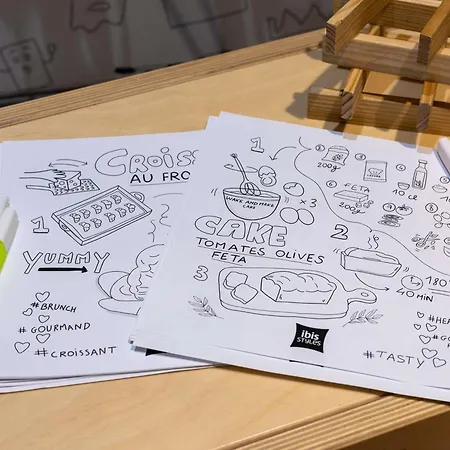 CROISS
AU FRO
1
YUMMY
#BRUNCH
#GOURMAND
#CROISSANT
1
200g
WAKE AND MAKE
CAKE
x 3
FETA
200g
10 CL
CAKE
TOMATES OLIVES
FETA
2
3
180°
40 MIN
ibis
STYLES
#HEA
#GO
#TASTY